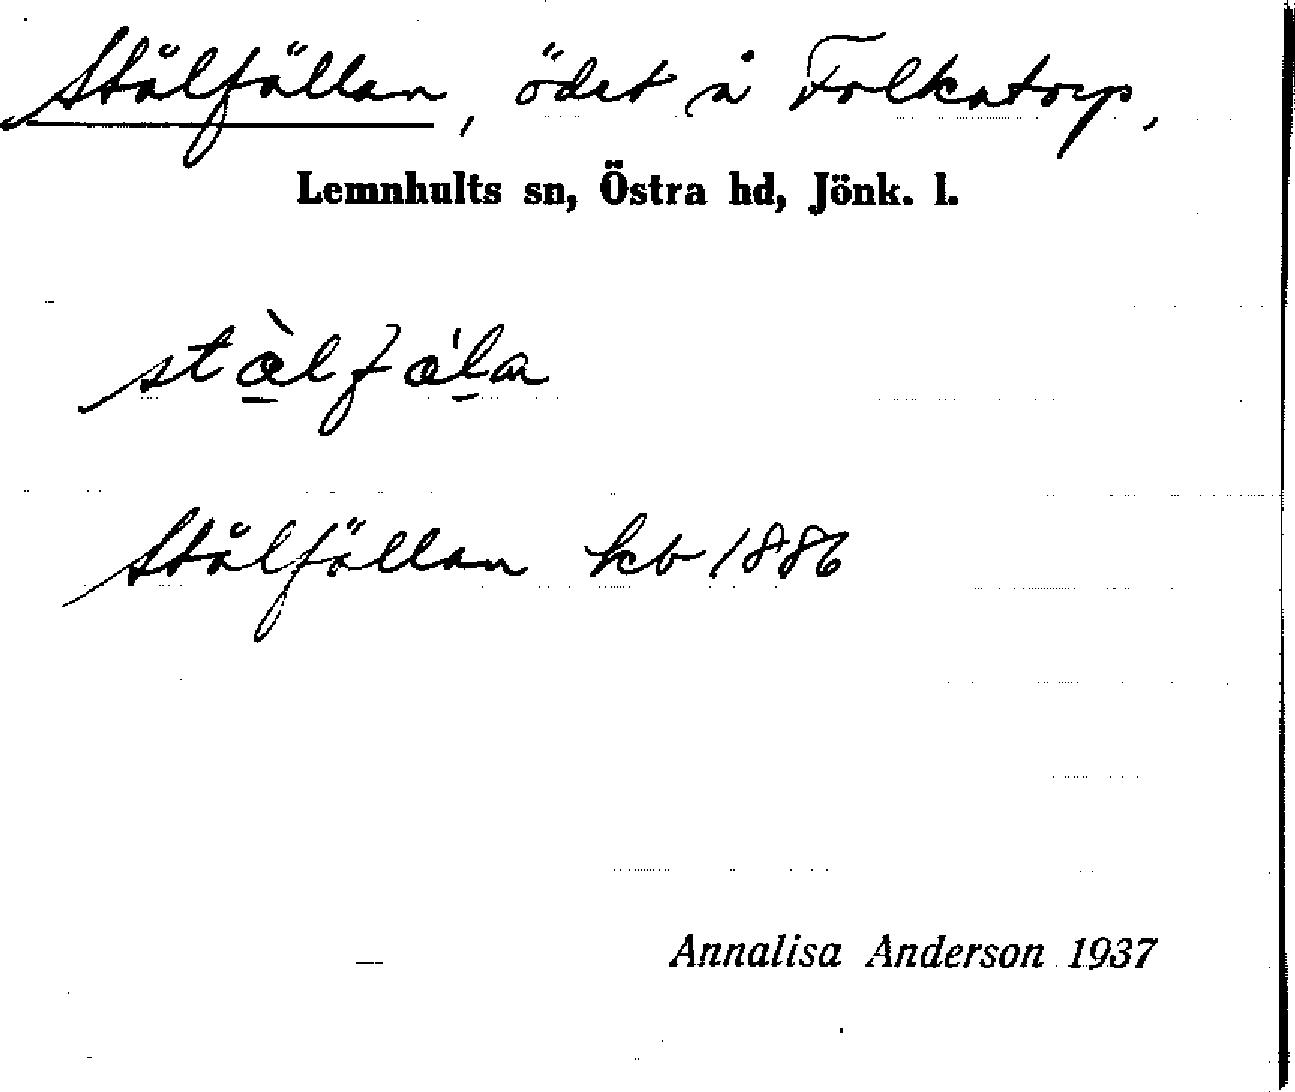 Stälfällan, ödet å Folkatorp,
Lemnhults sn, Östra hd, Jönk. l.
stæ̀lfæ´la
Stålfällan kb 1886
Annalisa Anderson 1937